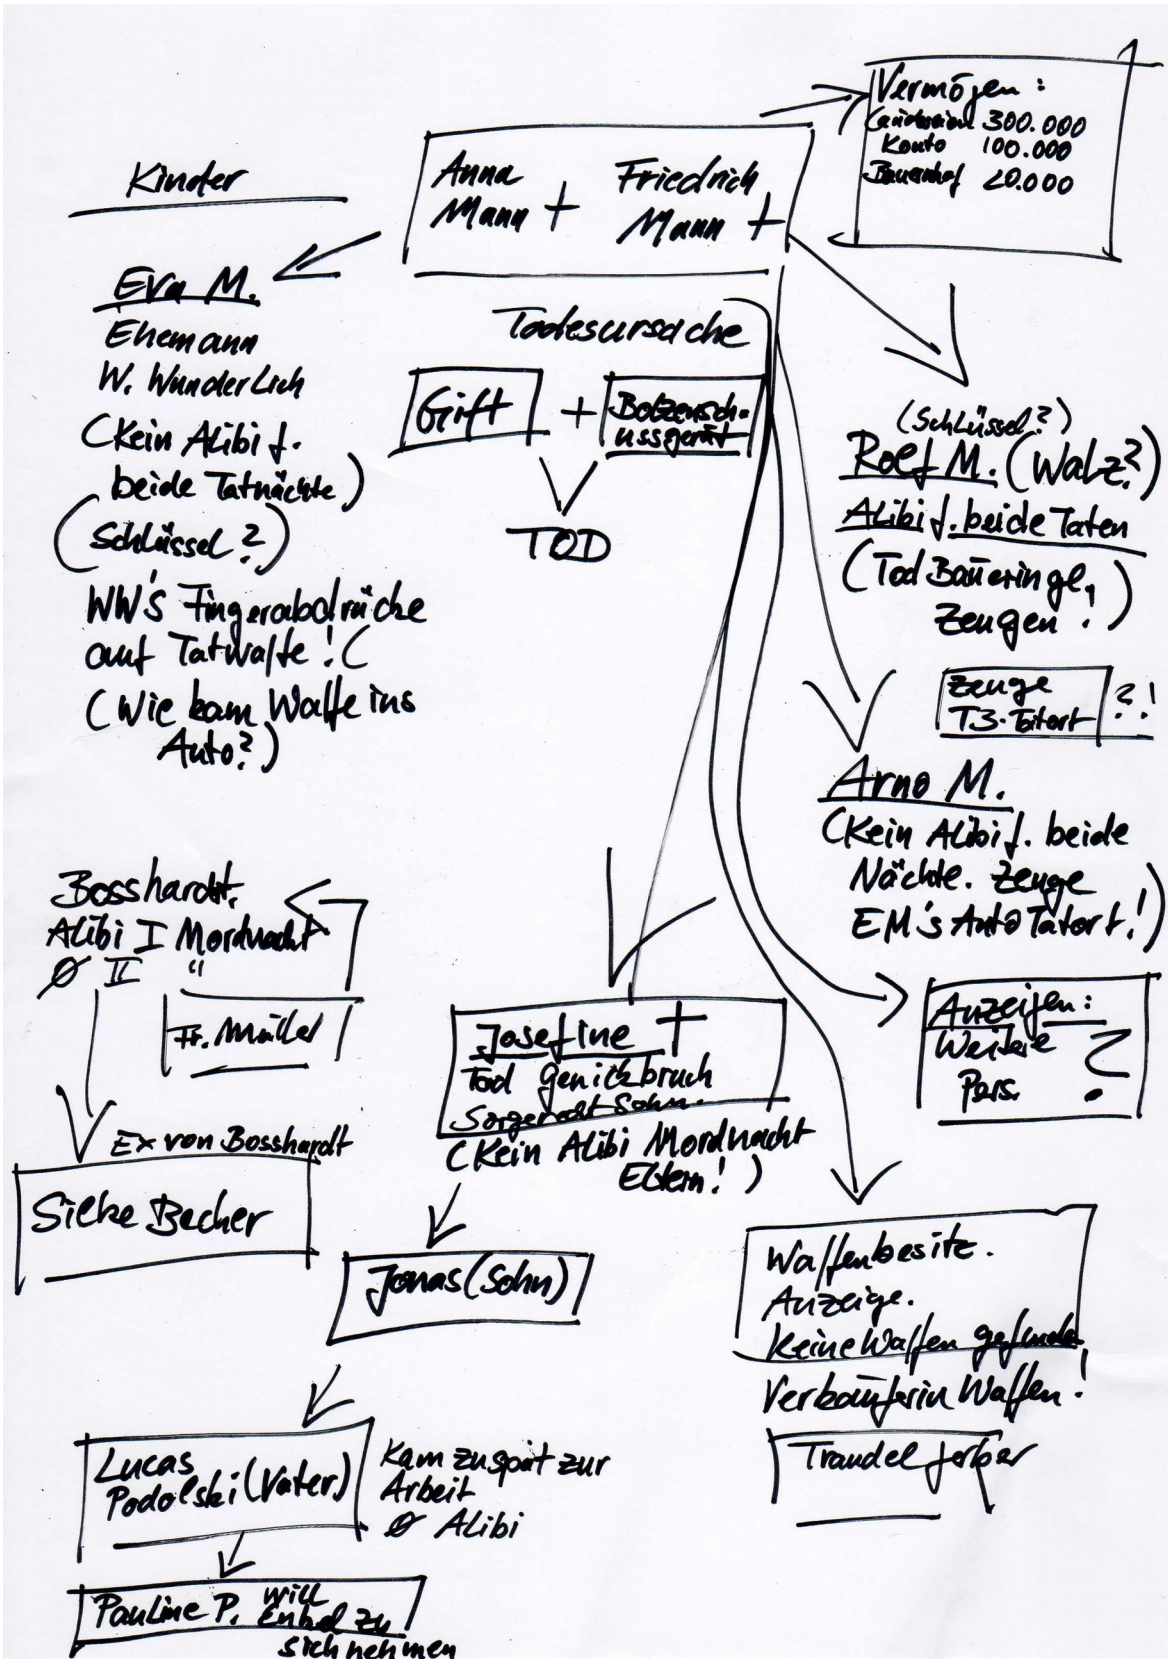 Vermögen:
300.000
Konto 100.000
Bauernhof 20.000
Kinder
Anna Friedrich
Mann + Mann +
Eva M.
Ehemann
W. Wunderlich
(Kein Alibi f.
beide Tatnächte)
(Schlüssel?)
WW's Fingerabdrücke
auf Tatwaffe! (
(Wie kam Waffe ins
Auto?)
Todesursache
Gift + Bolzensch-
ussgerät
TOD
(Schlüssel?)
Rolf M. (Walz?)
Alibi f. beide Taten
(Tod Bäuerin gel,
Zeugen!)
Zeuge
T3-Tatort ?!
Arno M.
(Kein Alibi f. beide
Nächte. Zeuge
EM's Auto Tatort!)
Bosshardt.
Alibi I Mordnacht
Ø II "
Fr. Müller
Ex von Bosshardt
Silke Becher
Josefine +
Tod Genickbruch
Sorgerecht Sohn.
(Kein Alibi Mordnacht
Eltern!)
Jonas (Sohn)
Lucas
Podolski (Vater)
Kam zu spät zur
Arbeit
Ø Alibi
Pauline P. will
Enkel zu
sich nehmen
Anzeigen:
Weitere
Pers. ?
Waffenbesitz.
Anzeige.
Keine Waffen gefunden
Verkäuferin Waffen!
Traudel